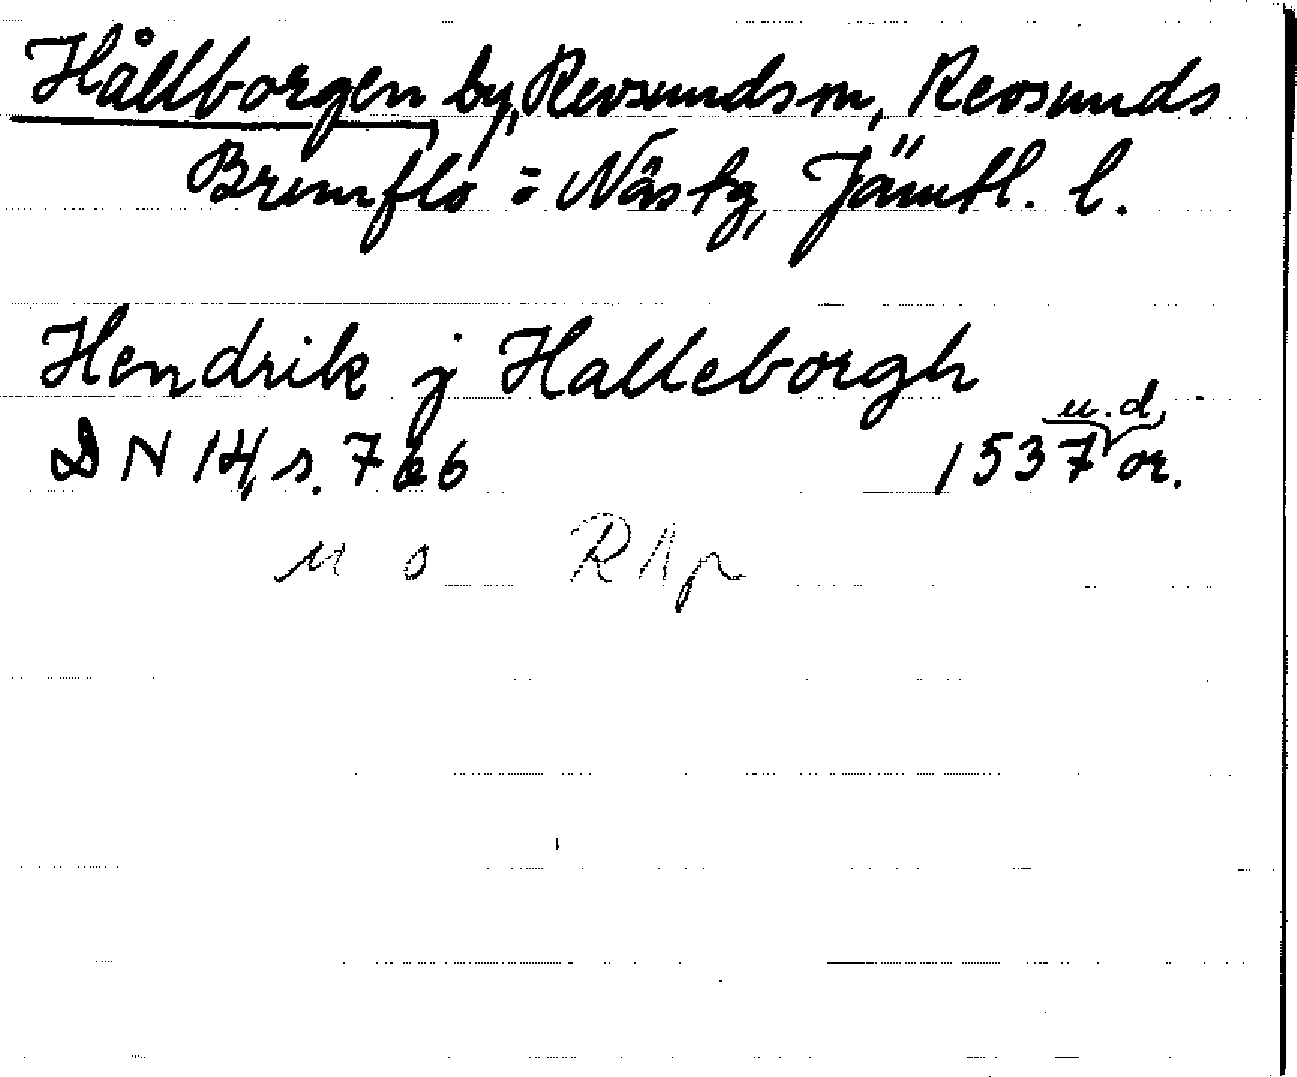 Hållborgen, by, Revsunds sn, Revsunds
Brunflo o Näs tg, Jämtl. l.
Hendrik j Halleborgh
u. d
DN 14, s. 766 1537 or.